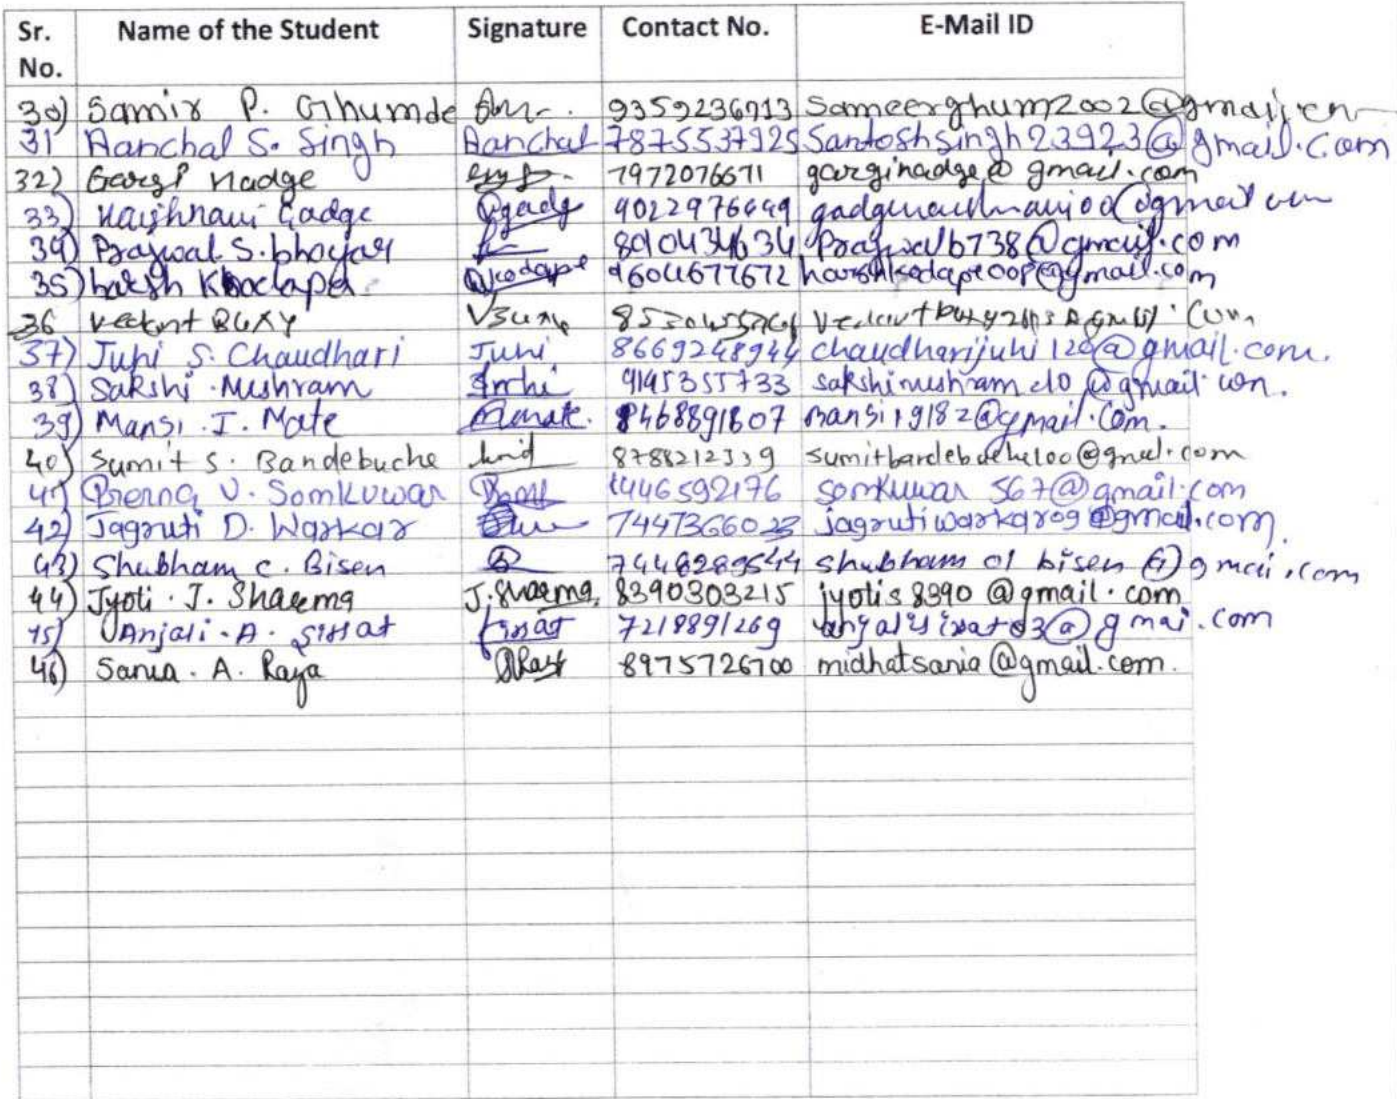 Sr. No. Name of the Student Signature Contact No. E-Mail ID
30) Samir P. Ghumde 9359236913 Sameerghum2002@gmail.com
31 Aanchal S. Singh Aanchal 7875537925 Santoshsingh23923@gmail.com
32) Gargi Nadge 7972076671 garginadge@gmail.com
33) Vaishnavi Gadge Vgadg 9022976449
34) Prajwal S. bhoyar Prajwalb738@gmail.com
35) harsh Khodape 9604677672 harshkodape008@gmail.com
36 Vedant BUXY
37) Juhi S. Chaudhari Juhi 8669248944 chaudharijuhi120@gmail.com.
38) Sakshi Meshram 9145355733
39) Mansi . J. Mate 8468891807 mansi19182@gmail.com.
40) Sumit S. Bandebuche 8788212339
41) Prerna V. Somkuwar somkuwar567@gmail.com
42) Jagruti D. Warkar 7447366023 jagrutiwarkar09@gmail.com
43) Shubham C. Bisen 7448289544 shubham01bisen@gmai.com
44) Jyoti . J. Sharma J.Sharma 8390303215 jyotis8390@gmail.com
45) Anjali . A. Sirsat Sirsat 7218891269
46) Sania . A. Raza 8975726700 midhatsania@gmail.com.